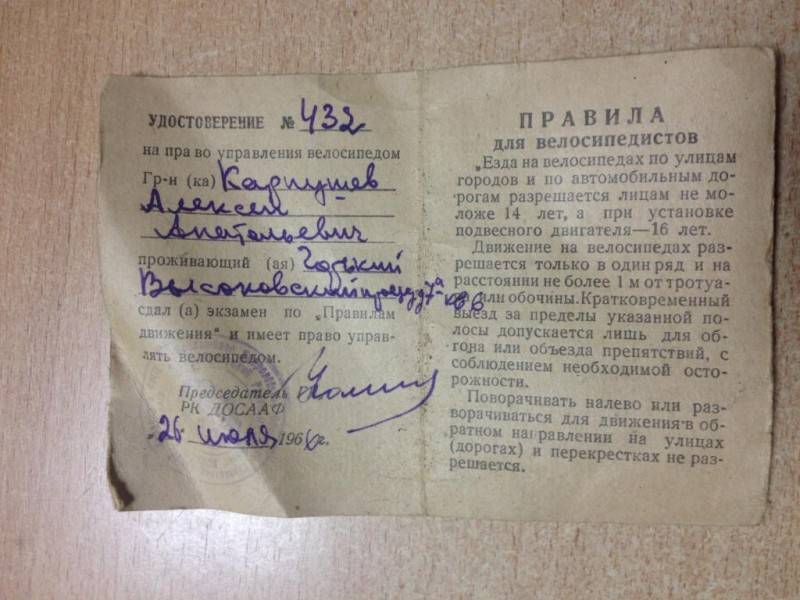 УДОСТОВЕРЕНИЕ № 432
на право управления велосипедом
Гр-н (ка) Карпушев
Алексей
Анатольевич
проживающий (ая) Горький
Высоковский проезд 7а кв 6
сдал (а) экзамен по „Правилам
движения" и имеет право управ-
лять велосипедом.
Председатель
РК ДОСААФ
„26 июля 1966 г.
ПРАВИЛА
для велосипедистов
„Езда на велосипедах по улицам
городов и по автомобильным до-
рогам разрешается лицам не мо-
ложе 14 лет, а при установке
подвесного двигателя—16 лет.
Движение на велосипедах раз-
решается только в один ряд и на
расстоянии не более 1 м от тротуа-
ра или обочины. Кратковременный
выезд за пределы указанной по-
лосы допускается лишь для об-
гона или объезда препятствий, с
соблюдением необходимой осто-
рожности.
Поворачивать налево или раз-
ворачиваться для движения в об-
ратном направлении на улицах
(дорогах) и перекрестках не раз-
решается.